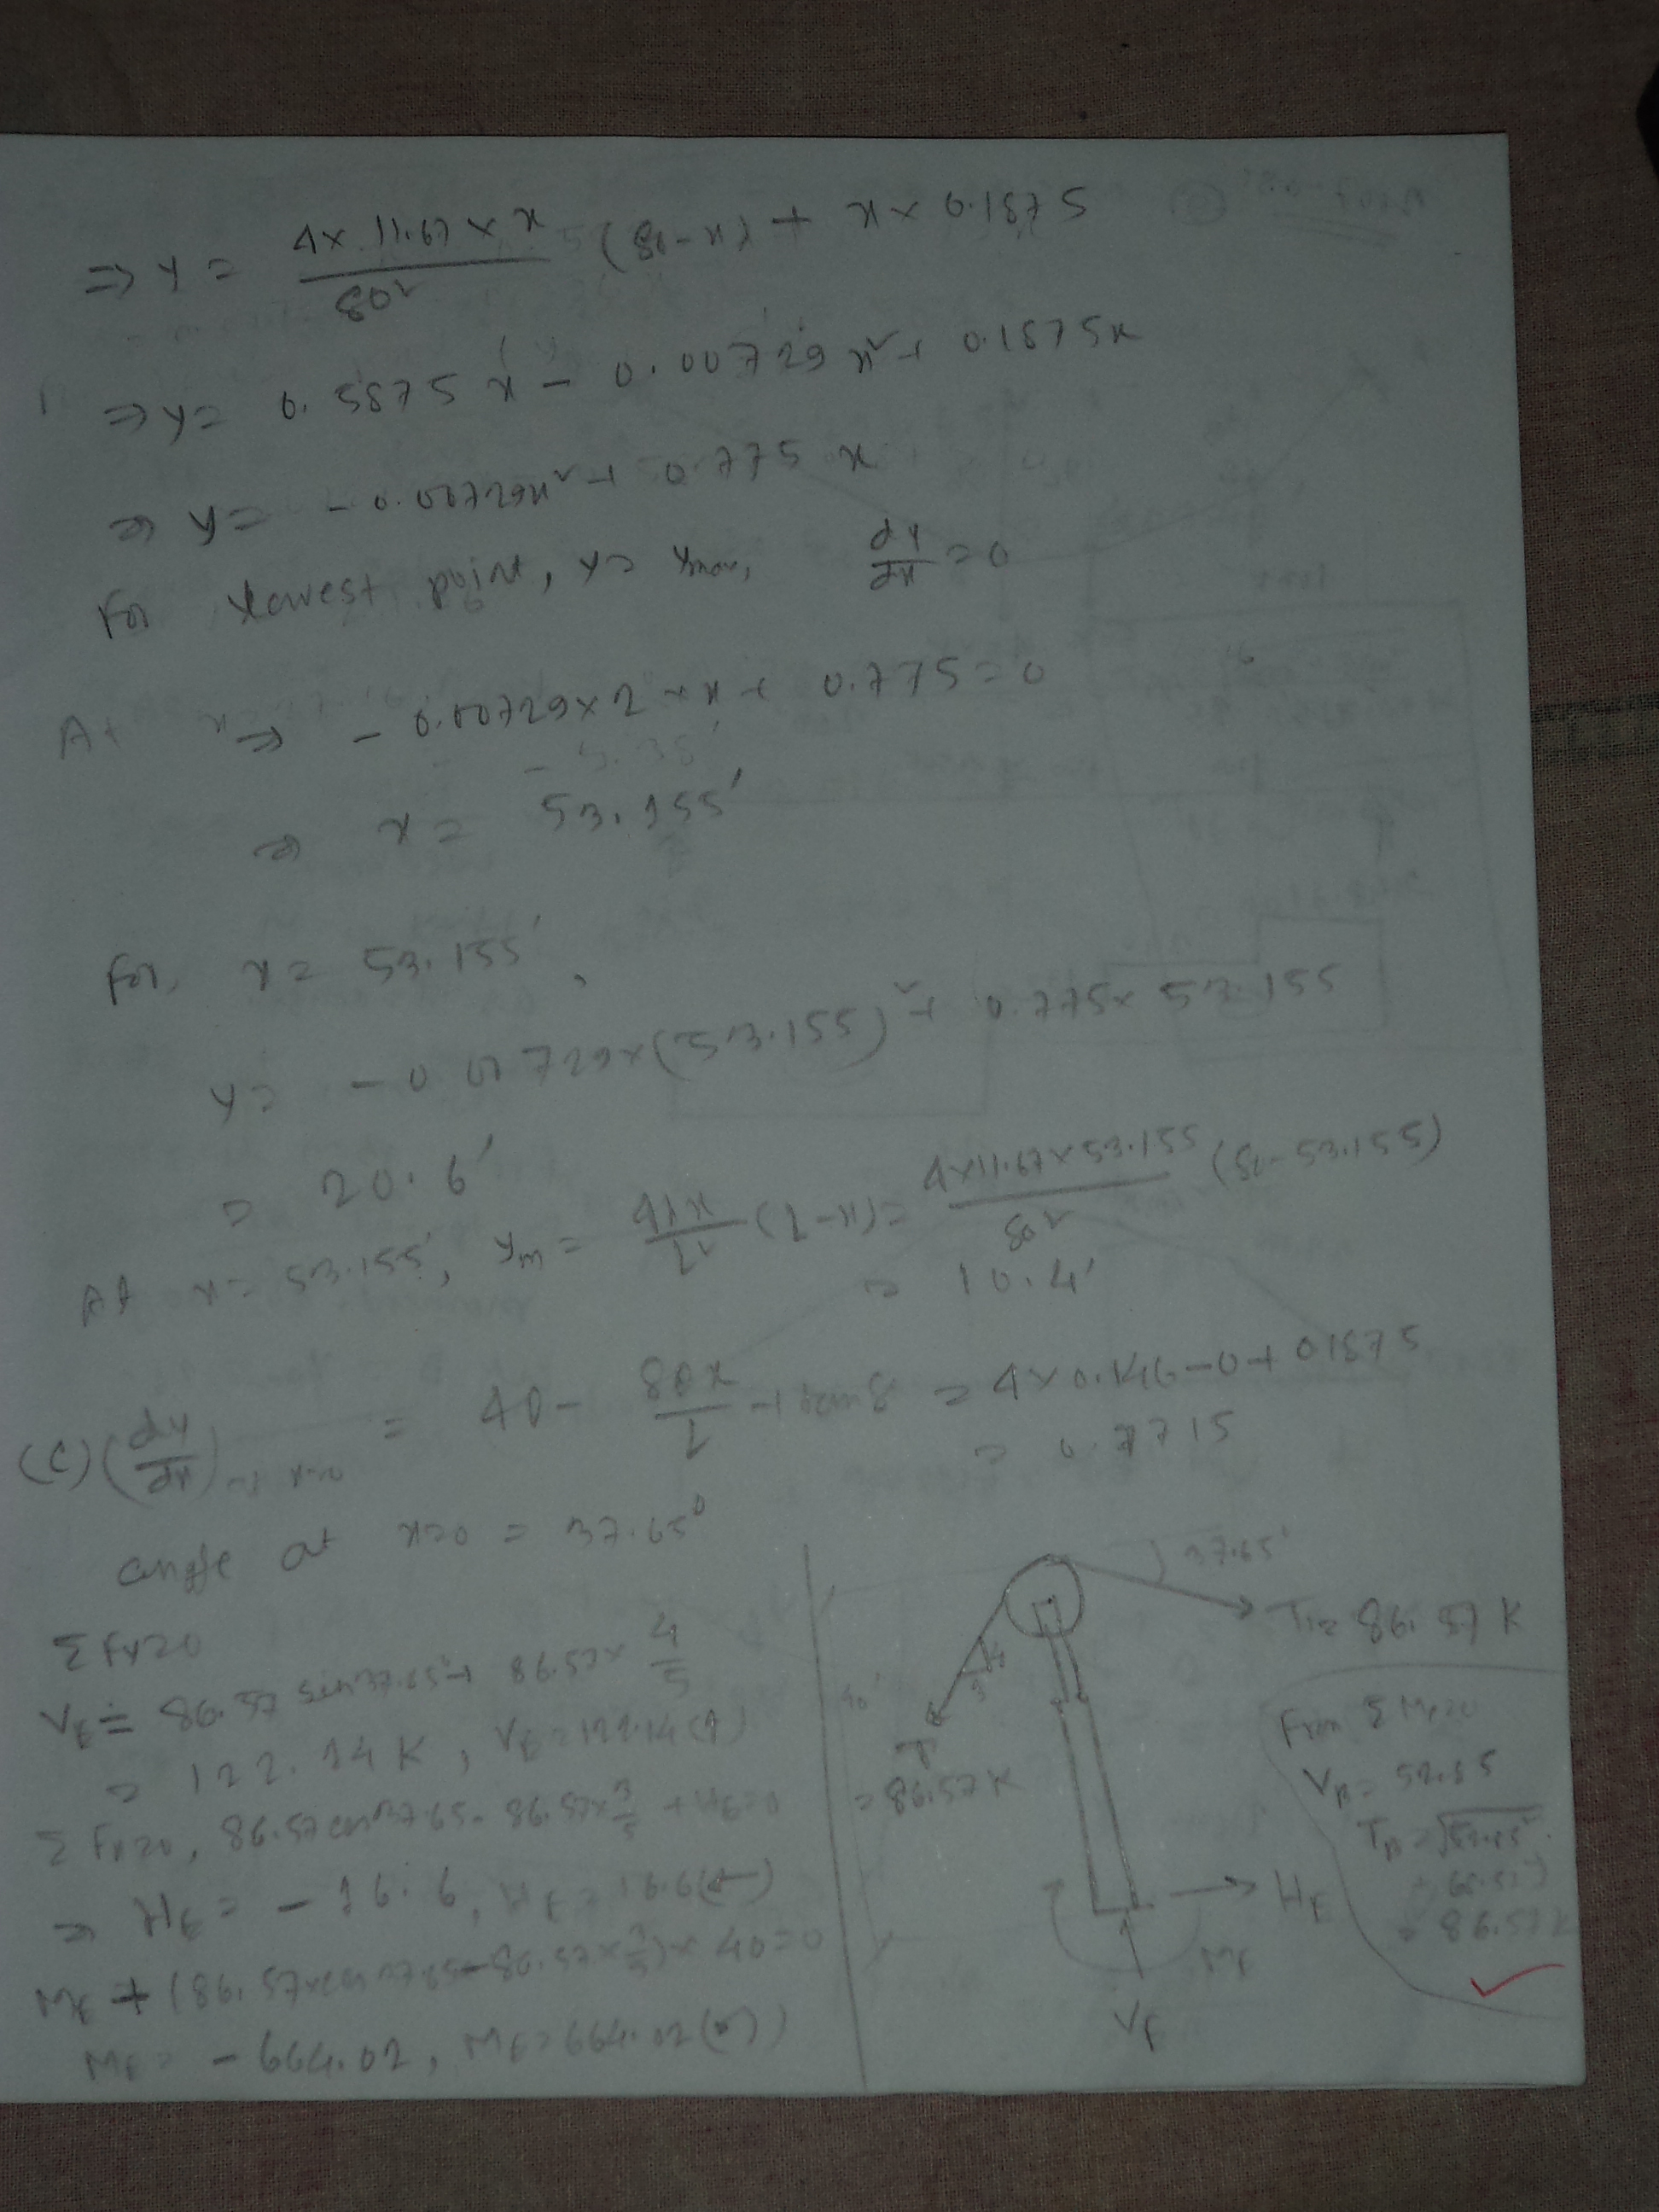 ⇒ y = 4 × 11.67 × x / 80² (80 - x) + x × 0.1875
⇒ y = 0.5875 x - 0.00729 x² + 0.1875x
⇒ y = - 0.00729x² + 0.775 x
For lowest point, y = ymax, dy/dx = 0
At x ⇒ - 0.00729 × 2 × x + 0.775 = 0
⇒ x = 53.155'
For, x = 53.155',
y = - 0.00729 × (53.155)² + 0.775 × 53.155
= 20.6'
At x = 53.155', ym = 4fx/L² (L-x) = 4×11.67×53.155/80² (80-53.155)
= 10.4'
(c) (dy/dx) x=0 = 4θ - 8θx/L + tanδ = 4×0.146 - 0 + 0.1875
= 0.7715
angle at x=0 = 37.65°
ΣFy=0
VE = 86.57 sin37.65 + 86.57 × 4/5
= 122.14 K, VE = 122.14 (↑)
ΣFx=0, 86.57 cos37.65 - 86.57×3/5 + HE=0
⇒ HE = - 16.6, HE = 16.6(←)
ME + (86.57×cos37.65 - 86.57×3/5) × 40 = 0
ME = - 664.02, ME = 664.02
37.65°
T = 86.57 K
4
3
40'
T
= 86.57 K
HE
ME
VE
VB = 52.85
= 86.57 K